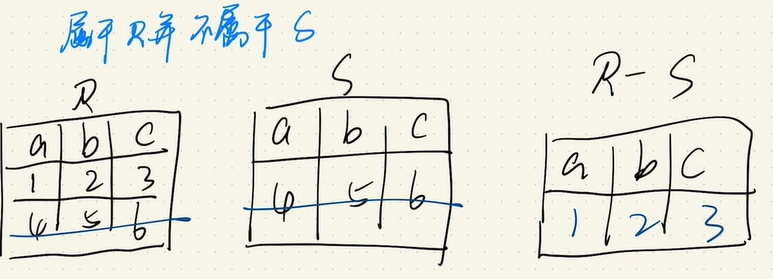 属于 R 并 不属于 S
R
a b c
1 2 3
4 5 6
S
a b c
4 5 6
R - S
a b c
1 2 3